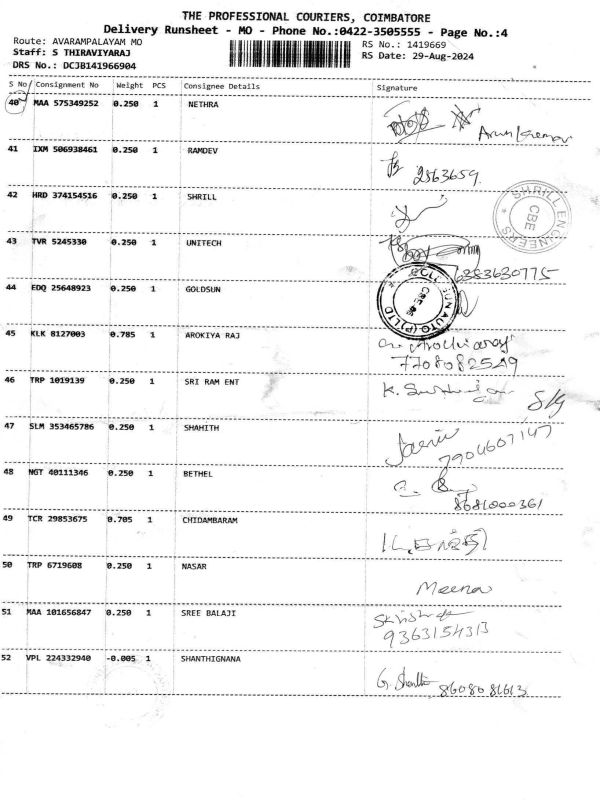 THE PROFESSIONAL COURIERS, COIMBATORE
Delivery Runsheet - MO - Phone No.:0422-3505555 - Page No.:4
Route: AVARAMPALAYAM MO
RS No.: 1419669
Staff: S THIRAVIYARAJ
RS Date: 29-Aug-2024
DRS No.: DCJB141966904
S No Consignment No Weight PCS Consignee Details Signature
40 MAA 575349252 0.250 1 NETHRA
41 IXM 506938461 0.250 1 RAMDEV 2863659.
42 HRD 374154516 0.250 1 SHRILL
SHRILL ENGINEERS
CBE
43 TVR 5245330 0.250 1 UNITECH
6383630775
44 EDQ 25648923 0.250 1 GOLDSUN
SUN AUTO (P) LTD
45 KLK 8127003 0.785 1 AROKIYA RAJ
7708082549
46 TRP 1019139 0.250 1 SRI RAM ENT
47 SLM 353465786 0.250 1 SHAHITH
7904607147
48 NGT 40111346 0.250 1 BETHEL
8681000361
49 TCR 29853675 0.705 1 CHIDAMBARAM
50 TRP 6719608 0.250 1 NASAR
Meena
51 MAA 101656847 0.250 1 SREE BALAJI
9363154313
52 VPL 224332940 -0.005 1 SHANTHIGNANA
G. Shanthi 8608081613